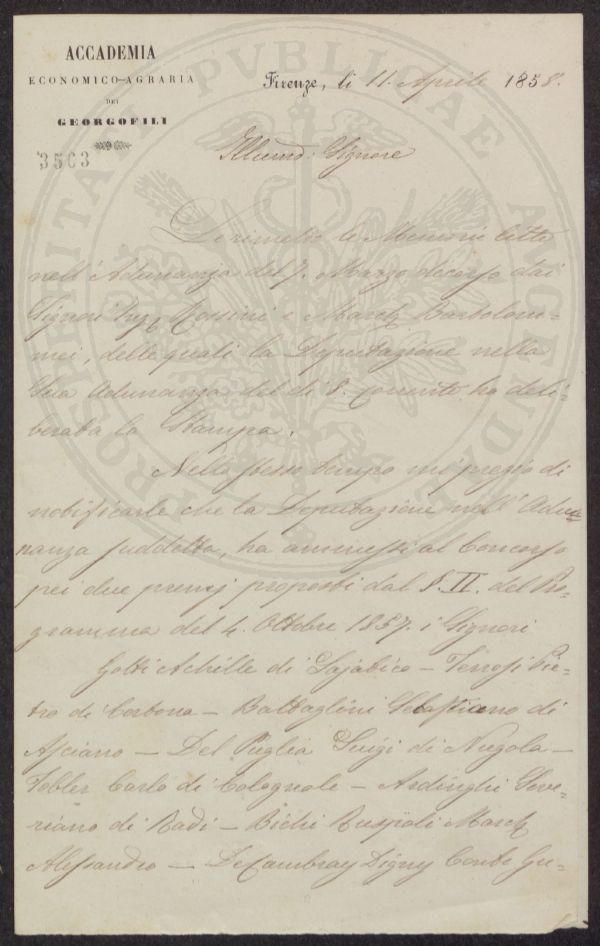 ACCADEMIA
ECONOMICO-AGRARIA
DEI
GEORGOFILI
3563
Firenze, li 11. Aprile 1858.
Illumo: Signore
Le rimetto le Memorie lette
nell'Adunanza del 7. Marzo decorso dai
Signori Ing. Rossini e March. Bartolom-
mei, delle quali la Deputazione nella
Sua Adunanza del di 8. corrente ha deli-
berata la Stampa.
Nello stesso tempo mi pregio di
notificarle che la Deputazione nell'Adu-
nanza suddetta, ha ammessi al Concorso
pei due premj proposti dal §. II. del Pro-
gramma del 4. Ottobre 1857. i Signori
Gotti Achille di Lajatico — Terrosi Pie-
tro di Cerbona — Battaglini Sebastiano di
Asciano — Del Puglia Luigi di Nugola —
Tobler Carlo di Colognole — Ardinghi Seve-
riano di Radi — Bichi Ruspoli March.
Alessandro — De Cambray Digny Conte Gu-
PROSPERITATI PVBLICAE AVGENDAE